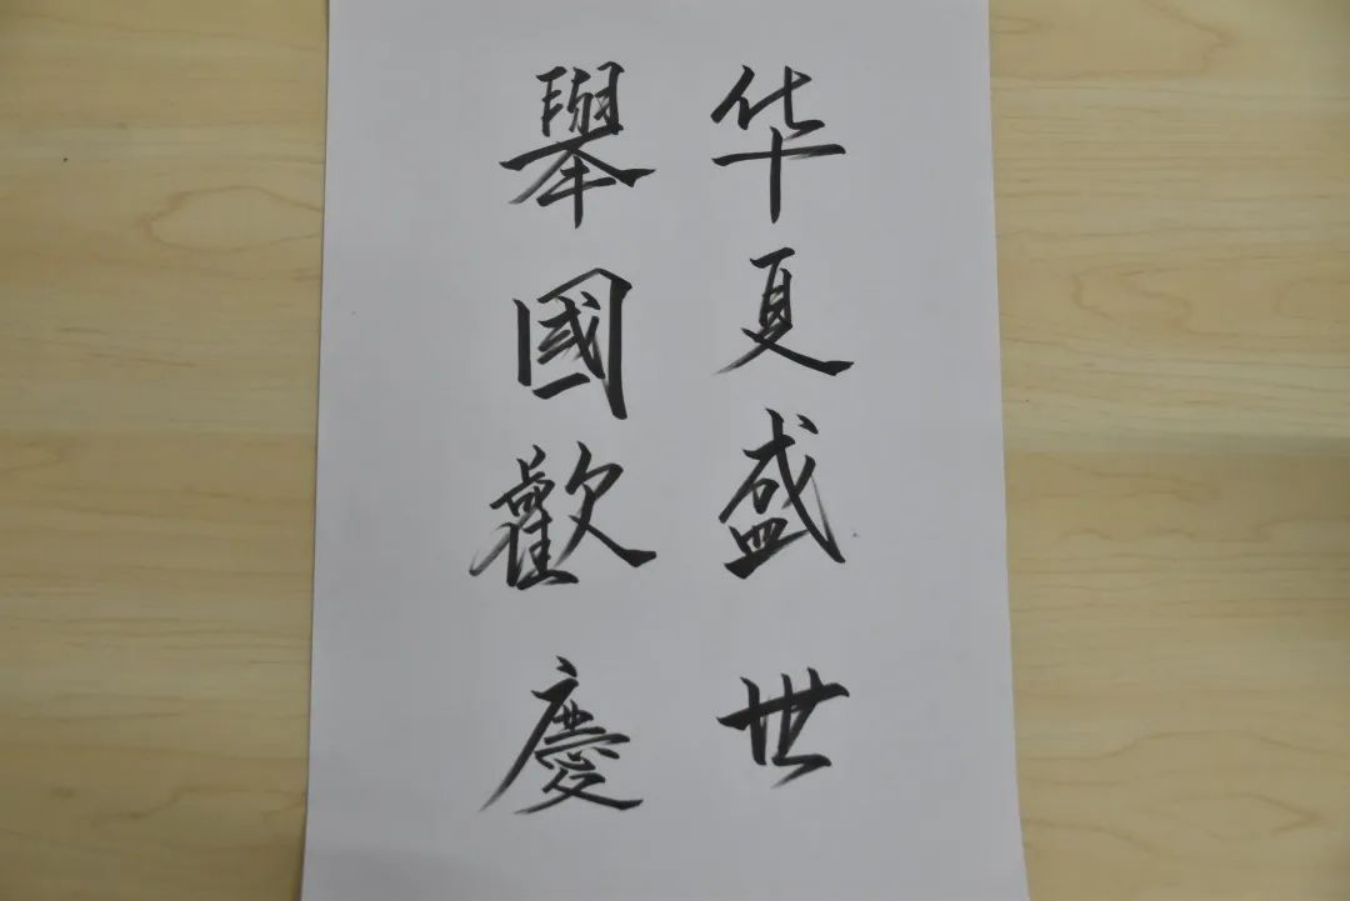 华夏盛世
舉國歡慶